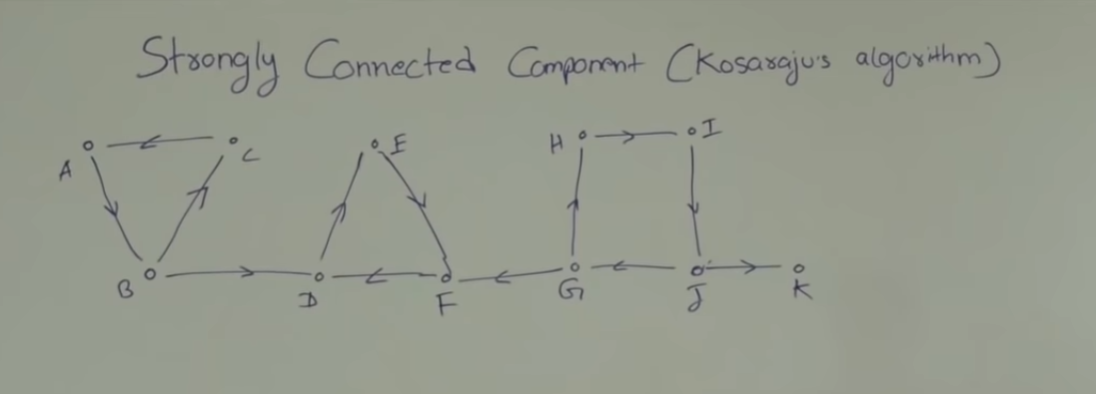 Strongly Connected Component (Kosaraju's algorithm)
A C E H I
B D F G J K